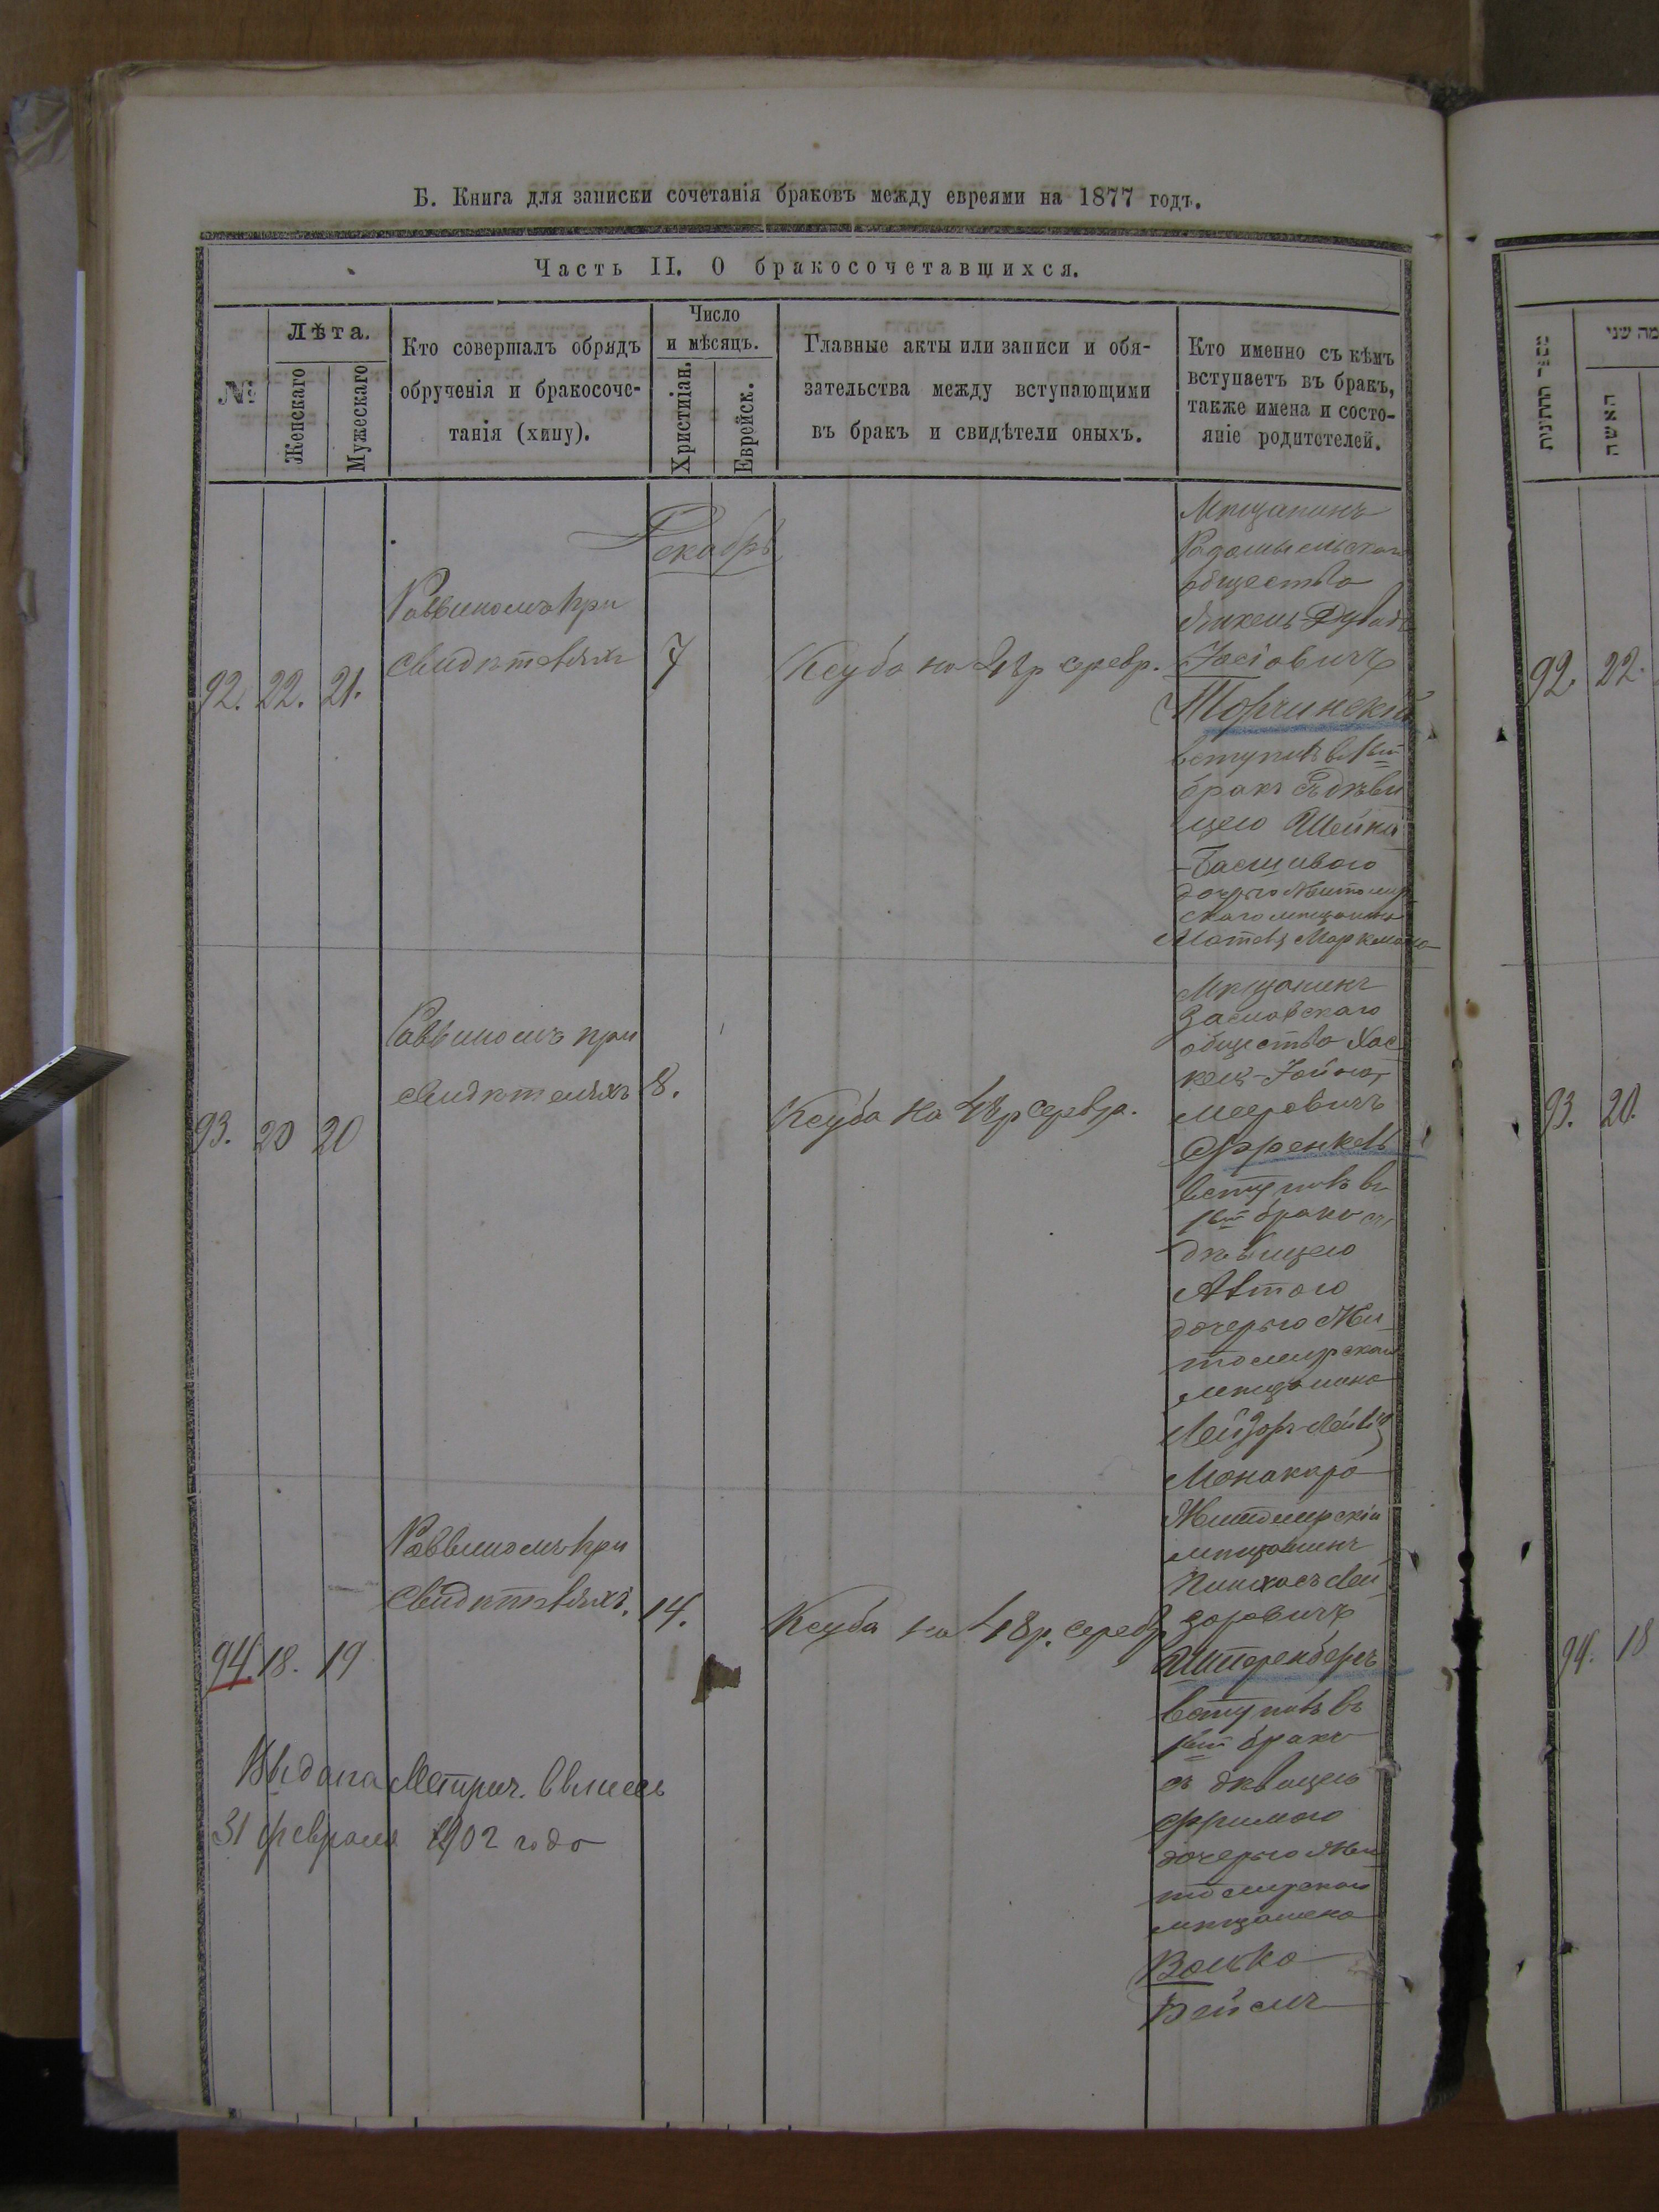 Б. Книга для записки сочетанія браковъ между евреями на 1877 годъ.
Часть II. О бракосочетавшихся.
№
Лѣта.
Женскаго
Мужескаго
Кто совершалъ обрядъ
обрученія и бракосоче-
танія (хипу).
Число
и мѣсяцъ.
Христиіан.
Еврейск.
Главные акты или записи и обя-
зательства между вступающими
въ бракъ и свидѣтели оныхъ.
Кто именно съ кѣмъ
вступаетъ въ бракъ,
также имена и состо-
яніе родителей.
Декабрь
92. 22. 21.
Раввиномъ при
свидѣтеляхъ
7
Ксуба на 48 р серебр.
Мѣщанинъ
Радомысльскаго
общества
Янкель-Дувидъ
Іосіовичъ
Торчинскій
вступилъ въ 1ый
бракъ съ дѣви
цею Шейна
-Басшивою
дочерью Житомир
скаго мѣщанина
Мотель Маркмана
93. 20 20
Раввиномъ при
свидѣтеляхъ
8.
Ксуба на 48 р серебр.
Мѣщанинъ
Заславскаго
общества Хас
кель-Іойна
Мееровичъ
Френкель
вступилъ въ
1ый бракъ съ
дѣвицею
дочерью Жи
томирскаго
мѣщанина
Лейзоръ-Лейвы
94. 18. 19
Раввиномъ при
свидѣтеляхъ.
14.
Ксуба на 48 р. серебр
Житомирскій
мѣщанинъ
Пинхасъ Лей
зоровичъ
Штеренберъ
вступилъ въ
1ый бракъ
съ дѣвицею
Фримою
дочерью Жи
томирскаго
мѣщанина
Волько
Выдана Метрич. выпись
31 февраля 1902 года
מספר החתונות
האשה
92. 22.
93. 20.
94. 18